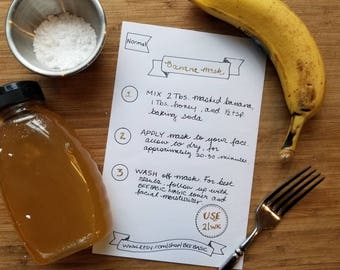 Normal
Banana mask
1 MIX 2 Tbs. mashed banana,
1 Tbs. honey, and 1/2 tsp
baking soda
2 APPLY mask to your face
allow to dry, for
approximately 20-30 minutes.
3 WASH off mask. For best
results, follow up with
BEEBASIC MAGIC toner and
facial moisturizer
USE
2/WK
www.etsy.com/shop/BEEBASIC